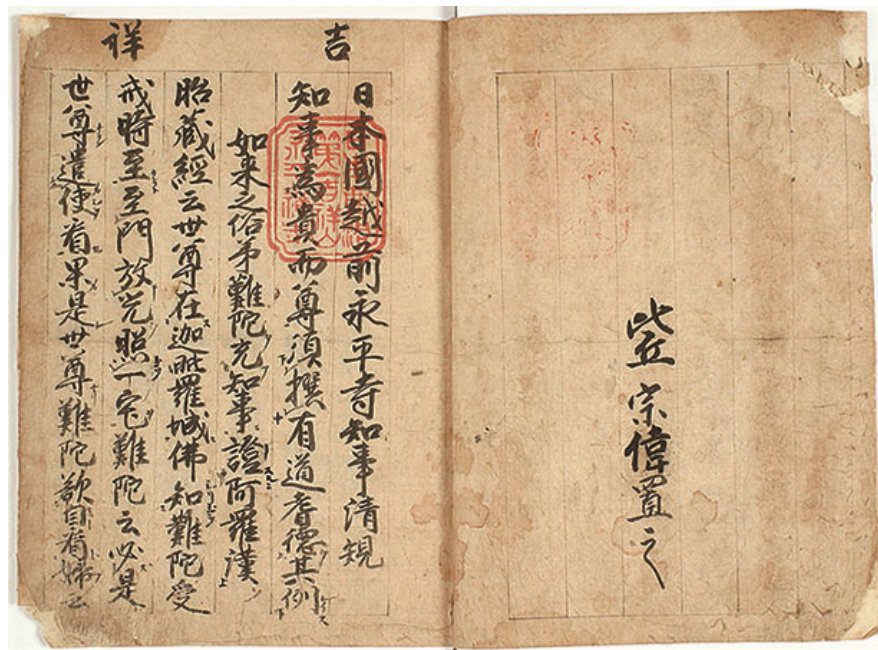 比丘宗偉置之
吉祥
日本國越前永平寺知事清規
知事爲貴而尊須撰有道耆德其例
如来之俗弟難陀充知事證阿羅漢
胎藏經云世尊在迦毗羅城佛知難陀受
戒時至至門放光照一宅難陀云必是
世尊遣使看果是世尊難陀欲自看婦云